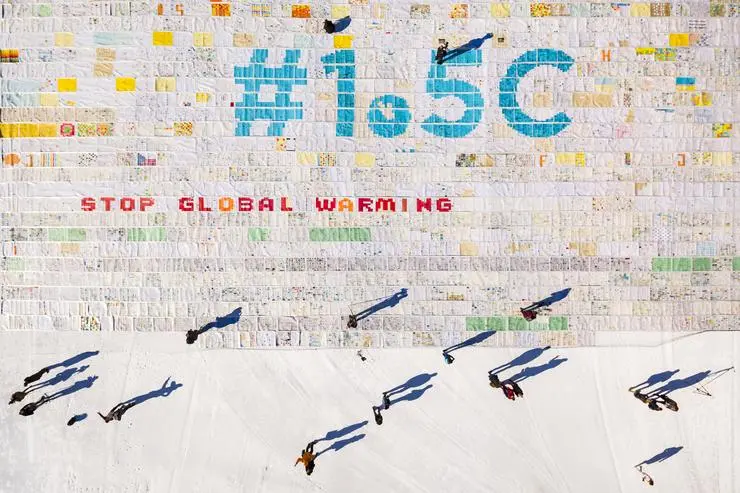 #1.5C
STOP GLOBAL WARMING